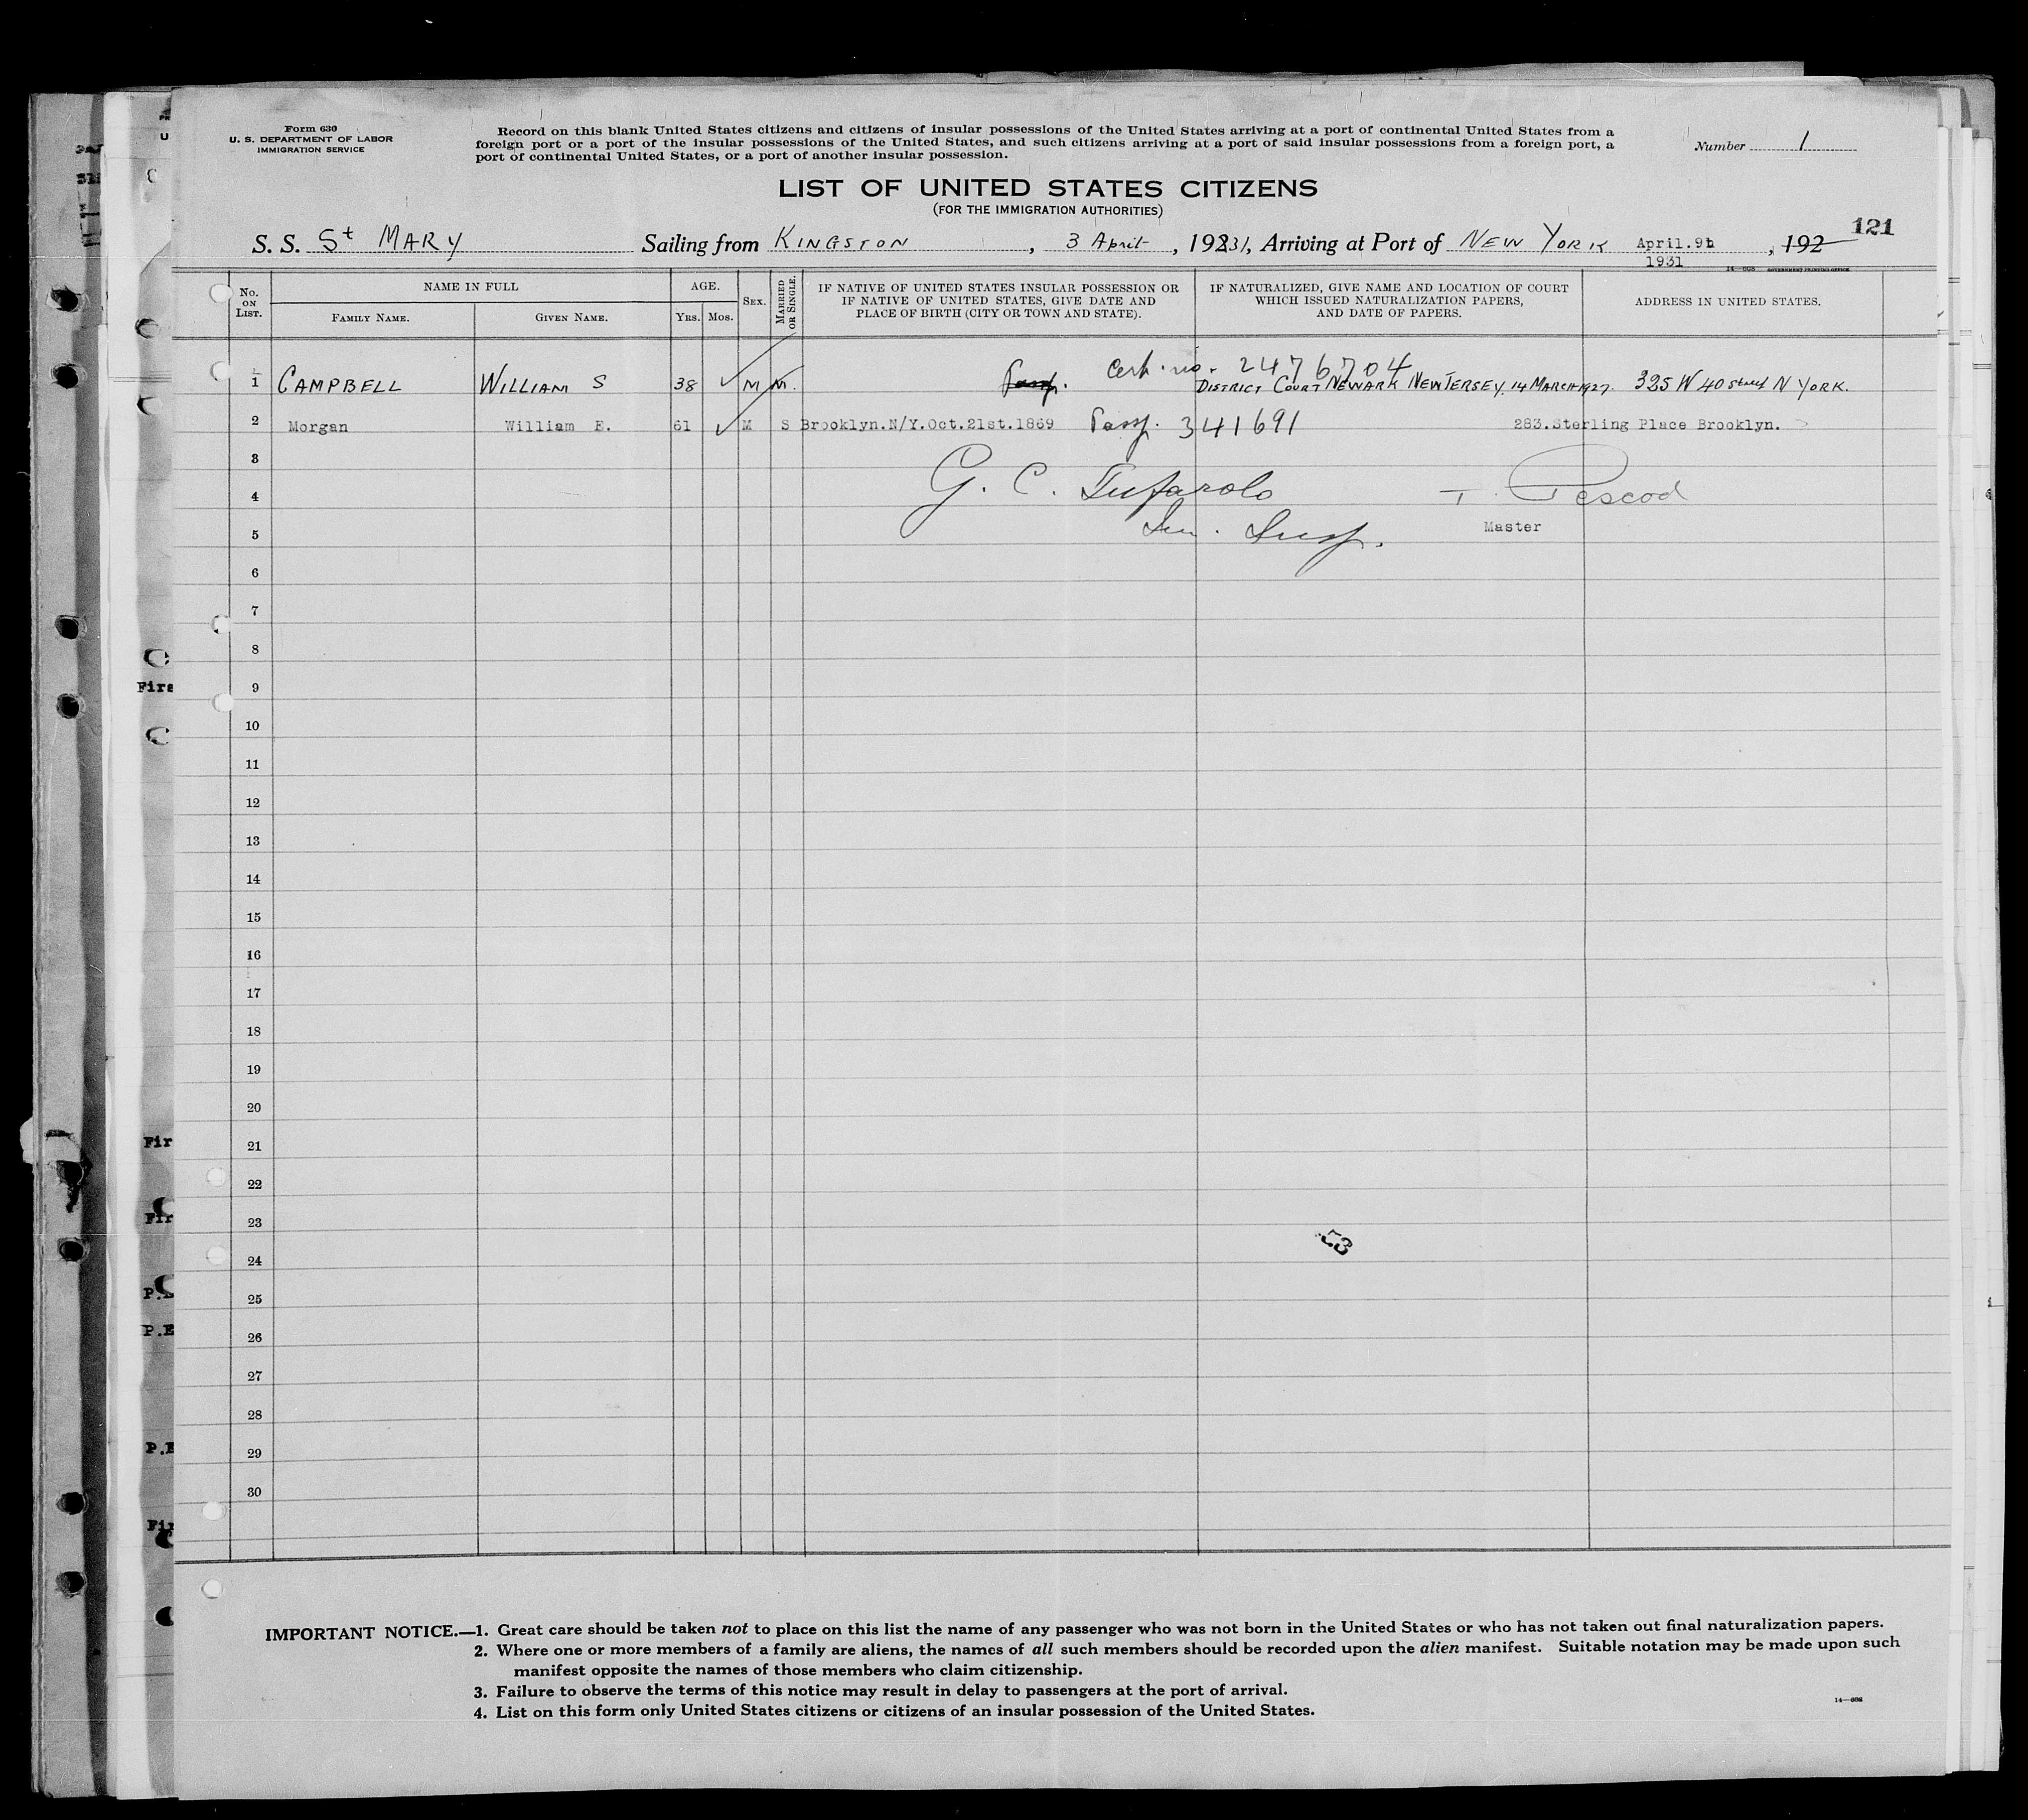 Form 630
U. S. DEPARTMENT OF LABOR
IMMIGRATION SERVICE
Record on this blank United States citizens and citizens of insular possessions of the United States arriving at a port of continental United States from a
foreign port or a port of the insular possessions of the United States, and such citizens arriving at a port of said insular possessions from a foreign port, a
port of continental United States, or a port of another insular possession.
Number 1
LIST OF UNITED STATES CITIZENS
(FOR THE IMMIGRATION AUTHORITIES)
121
S. S. St MARY Sailing from KINGSTON, 3 April, 1931, Arriving at Port of NEW YORK April.9th, 192
1931
14—608 GOVERNMENT PRINTING OFFICE
No. ON LIST.
NAME IN FULL
FAMILY NAME.
GIVEN NAME.
AGE.
YRS. MOS.
SEX.
MARRIED OR SINGLE.
IF NATIVE OF UNITED STATES INSULAR POSSESSION OR
IF NATIVE OF UNITED STATES, GIVE DATE AND
PLACE OF BIRTH (CITY OR TOWN AND STATE).
IF NATURALIZED, GIVE NAME AND LOCATION OF COURT
WHICH ISSUED NATURALIZATION PAPERS,
AND DATE OF PAPERS.
ADDRESS IN UNITED STATES.
Cert. no. 2476704
1 CAMPBELL WILLIAM S 38 M M. Passp. DISTRICT COURT NEWARK NEW JERSEY. 14 MARCH 1927. 325 W 40 Street N YORK.
2 Morgan William E. 61 M S Brooklyn.N/Y.Oct.21st.1869 Passp. 341691 283.Sterling Place Brooklyn.
3
4 G. C. Tufarolo T. Pescod
5 Imm. Insp. Master
6
7
8
9
10
11
12
13
14
15
16
17
18
19
20
21
22
23
53
24
25
26
27
28
29
30
Fire
Fir
Fir
P.E
P.E
Fir
IMPORTANT NOTICE.—1. Great care should be taken not to place on this list the name of any passenger who was not born in the United States or who has not taken out final naturalization papers.
2. Where one or more members of a family are aliens, the names of all such members should be recorded upon the alien manifest. Suitable notation may be made upon such
manifest opposite the names of those members who claim citizenship.
3. Failure to observe the terms of this notice may result in delay to passengers at the port of arrival.
4. List on this form only United States citizens or citizens of an insular possession of the United States.
14—608